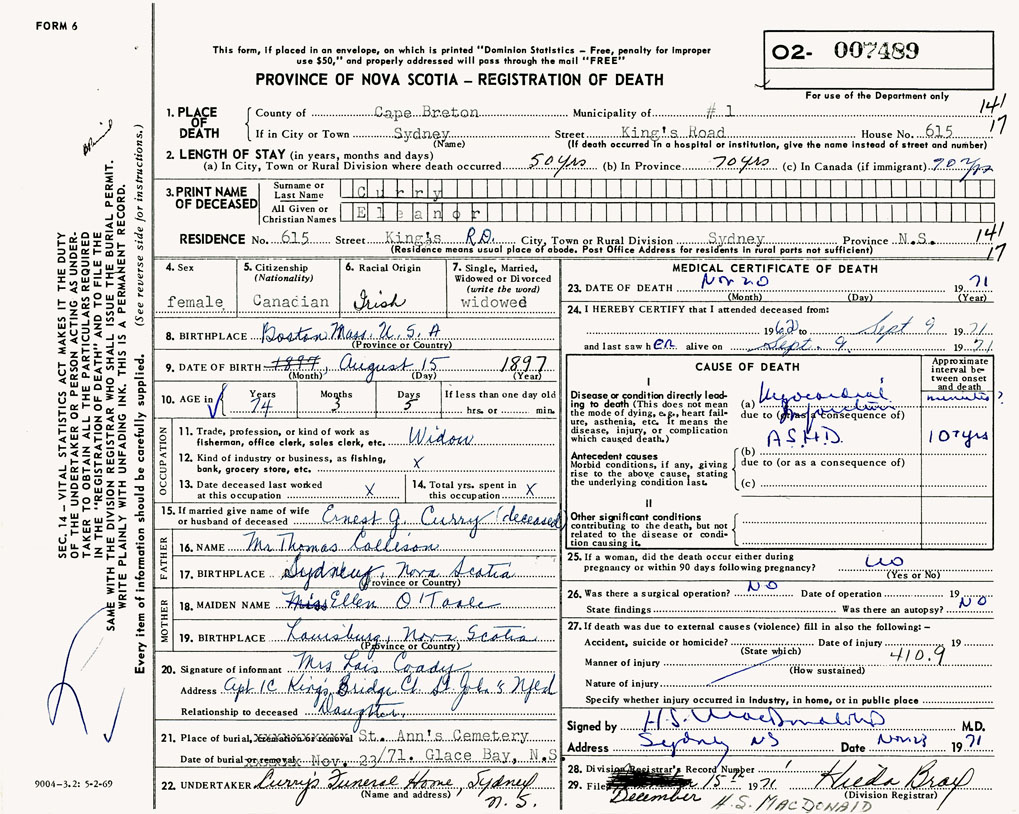 FORM 6
This form, if placed in an envelope, on which is printed "Dominion Statistics – Free, penalty for improper
use $50," and properly addressed will pass through the mail "FREE"
PROVINCE OF NOVA SCOTIA – REGISTRATION OF DEATH
02- 007489
For use of the Department only
141
17
1. PLACE OF DEATH
County of Cape Breton Municipality of #1
If in City or Town Sydney Street King's Road House No. 615
(Name) (If death occurred in a hospital or institution, give name instead of street and number)
2. LENGTH OF STAY (in years, months and days)
(a) In City, Town or Rural Division where death occurred 50 yrs (b) In Province 70 yrs (c) In Canada (if immigrant) 70 yrs
3. PRINT NAME OF DECEASED
Surname or Last Name Curry
All Given or Christian Names Eleanor
RESIDENCE No. 615 Street King's RD. City, Town or Rural Division Sydney Province N.S.
(Residence means usual place of abode. Post Office Address for residents in rural parts not sufficient)
141
17
4. Sex
female
5. Citizenship
(Nationality)
Canadian
6. Racial Origin
Irish
7. Single, Married,
Widowed or Divorced
(write the word)
widowed
8. BIRTHPLACE Boston Mass. U.S.A
(Province or Country)
9. DATE OF BIRTH 1897, August 15 1897
(Month) (Day) (Year)
10. AGE in
Years Months Days If less than one day
74 3 5 hrs. or min.
OCCUPATION
11. Trade, profession, or kind of work as
fisherman, office clerk, sales clerk, etc. Widow
12. Kind of industry or business, as fishing,
bank, grocery store, etc. X
13. Date deceased last worked
at this occupation X
14. Total yrs. spent in
this occupation X
15. If married give name of wife
or husband of deceased Ernest G. Curry (deceased
FATHER
16. NAME Mr Thomas Collison
17. BIRTHPLACE Sydney, Nova Scotia
(Province or Country)
MOTHER
18. MAIDEN NAME Miss Ellen O'Toole
19. BIRTHPLACE Louisburg, Nova Scotia
(Province or Country)
20. Signature of informant Mrs Lois Coady
Address Apt 1C King's Bridge Ct. St. John's Nfld
Relationship to deceased Daughter,
21. Place of burial, cremation or removal St. Ann's Cemetery
Date of burial or removal Nov. 23/71. Glace Bay, N.S
22. UNDERTAKER Curry's Funeral Home, Sydney
(Name and address) N.S.
MEDICAL CERTIFICATE OF DEATH
23. DATE OF DEATH Nov 20 1971
(Month) (Day) (Year)
24. I HEREBY CERTIFY that I attended deceased from:
1962 to Sept 9 1971
and last saw her alive on Sept. 9 1971
CAUSE OF DEATH
Approximate
interval be-
tween onset
and death
I
Disease or condition directly lead-
ing to death (This does not mean
the mode of dying, e.g., heart fail-
ure, asthenia, etc. It means the
disease, injury, or complication
which caused death.)
(a) Myocardial Infarction minutes?
due to (or as a consequence of)
A.S.H.D. 10 yrs
Antecedent causes
Morbid conditions, if any, giving
rise to the above cause, stating
the underlying condition last.
(b)
due to (or as a consequence of)
(c)
II
Other significant conditions
contributing to the death, but not
related to the disease or condi-
tion causing it.
25. If a woman, did the death occur either during
pregnancy or within 90 days following pregnancy? no
(Yes or No)
26. Was there a surgical operation? NO Date of operation 19
State findings Was there an autopsy? NO
27. If death was due to external causes (violence) fill in also the following: –
Accident, suicide or homicide? Date of injury 19
(State which) 410.9
Manner of injury
(How sustained)
Nature of injury
Specify whether injury occurred in industry, in home, or in public place
Signed by H.S. MacDonald M.D.
Address Sydney NS Date Nov 23 1971
28. Division Registrar's Record Number
29. Filed December 15th 1971
(Division Registrar)
H.S. MACDONALD
SEC. 14 – VITAL STATISTICS ACT MAKES IT THE DUTY
OF THE UNDERTAKER OR PERSON ACTING AS UNDER-
TAKER TO OBTAIN ALL THE PARTICULARS REQUIRED
IN THE "REGISTRATION OF DEATH" AND TO FILE THE
SAME WITH THE DIVISION REGISTRAR WHO SHALL ISSUE THE BURIAL PERMIT.
WRITE PLAINLY WITH UNFADING INK. THIS IS A PERMANENT RECORD.
Every item of information should be carefully supplied. (See reverse side for instructions.)
9004-3.2: 5-2-69